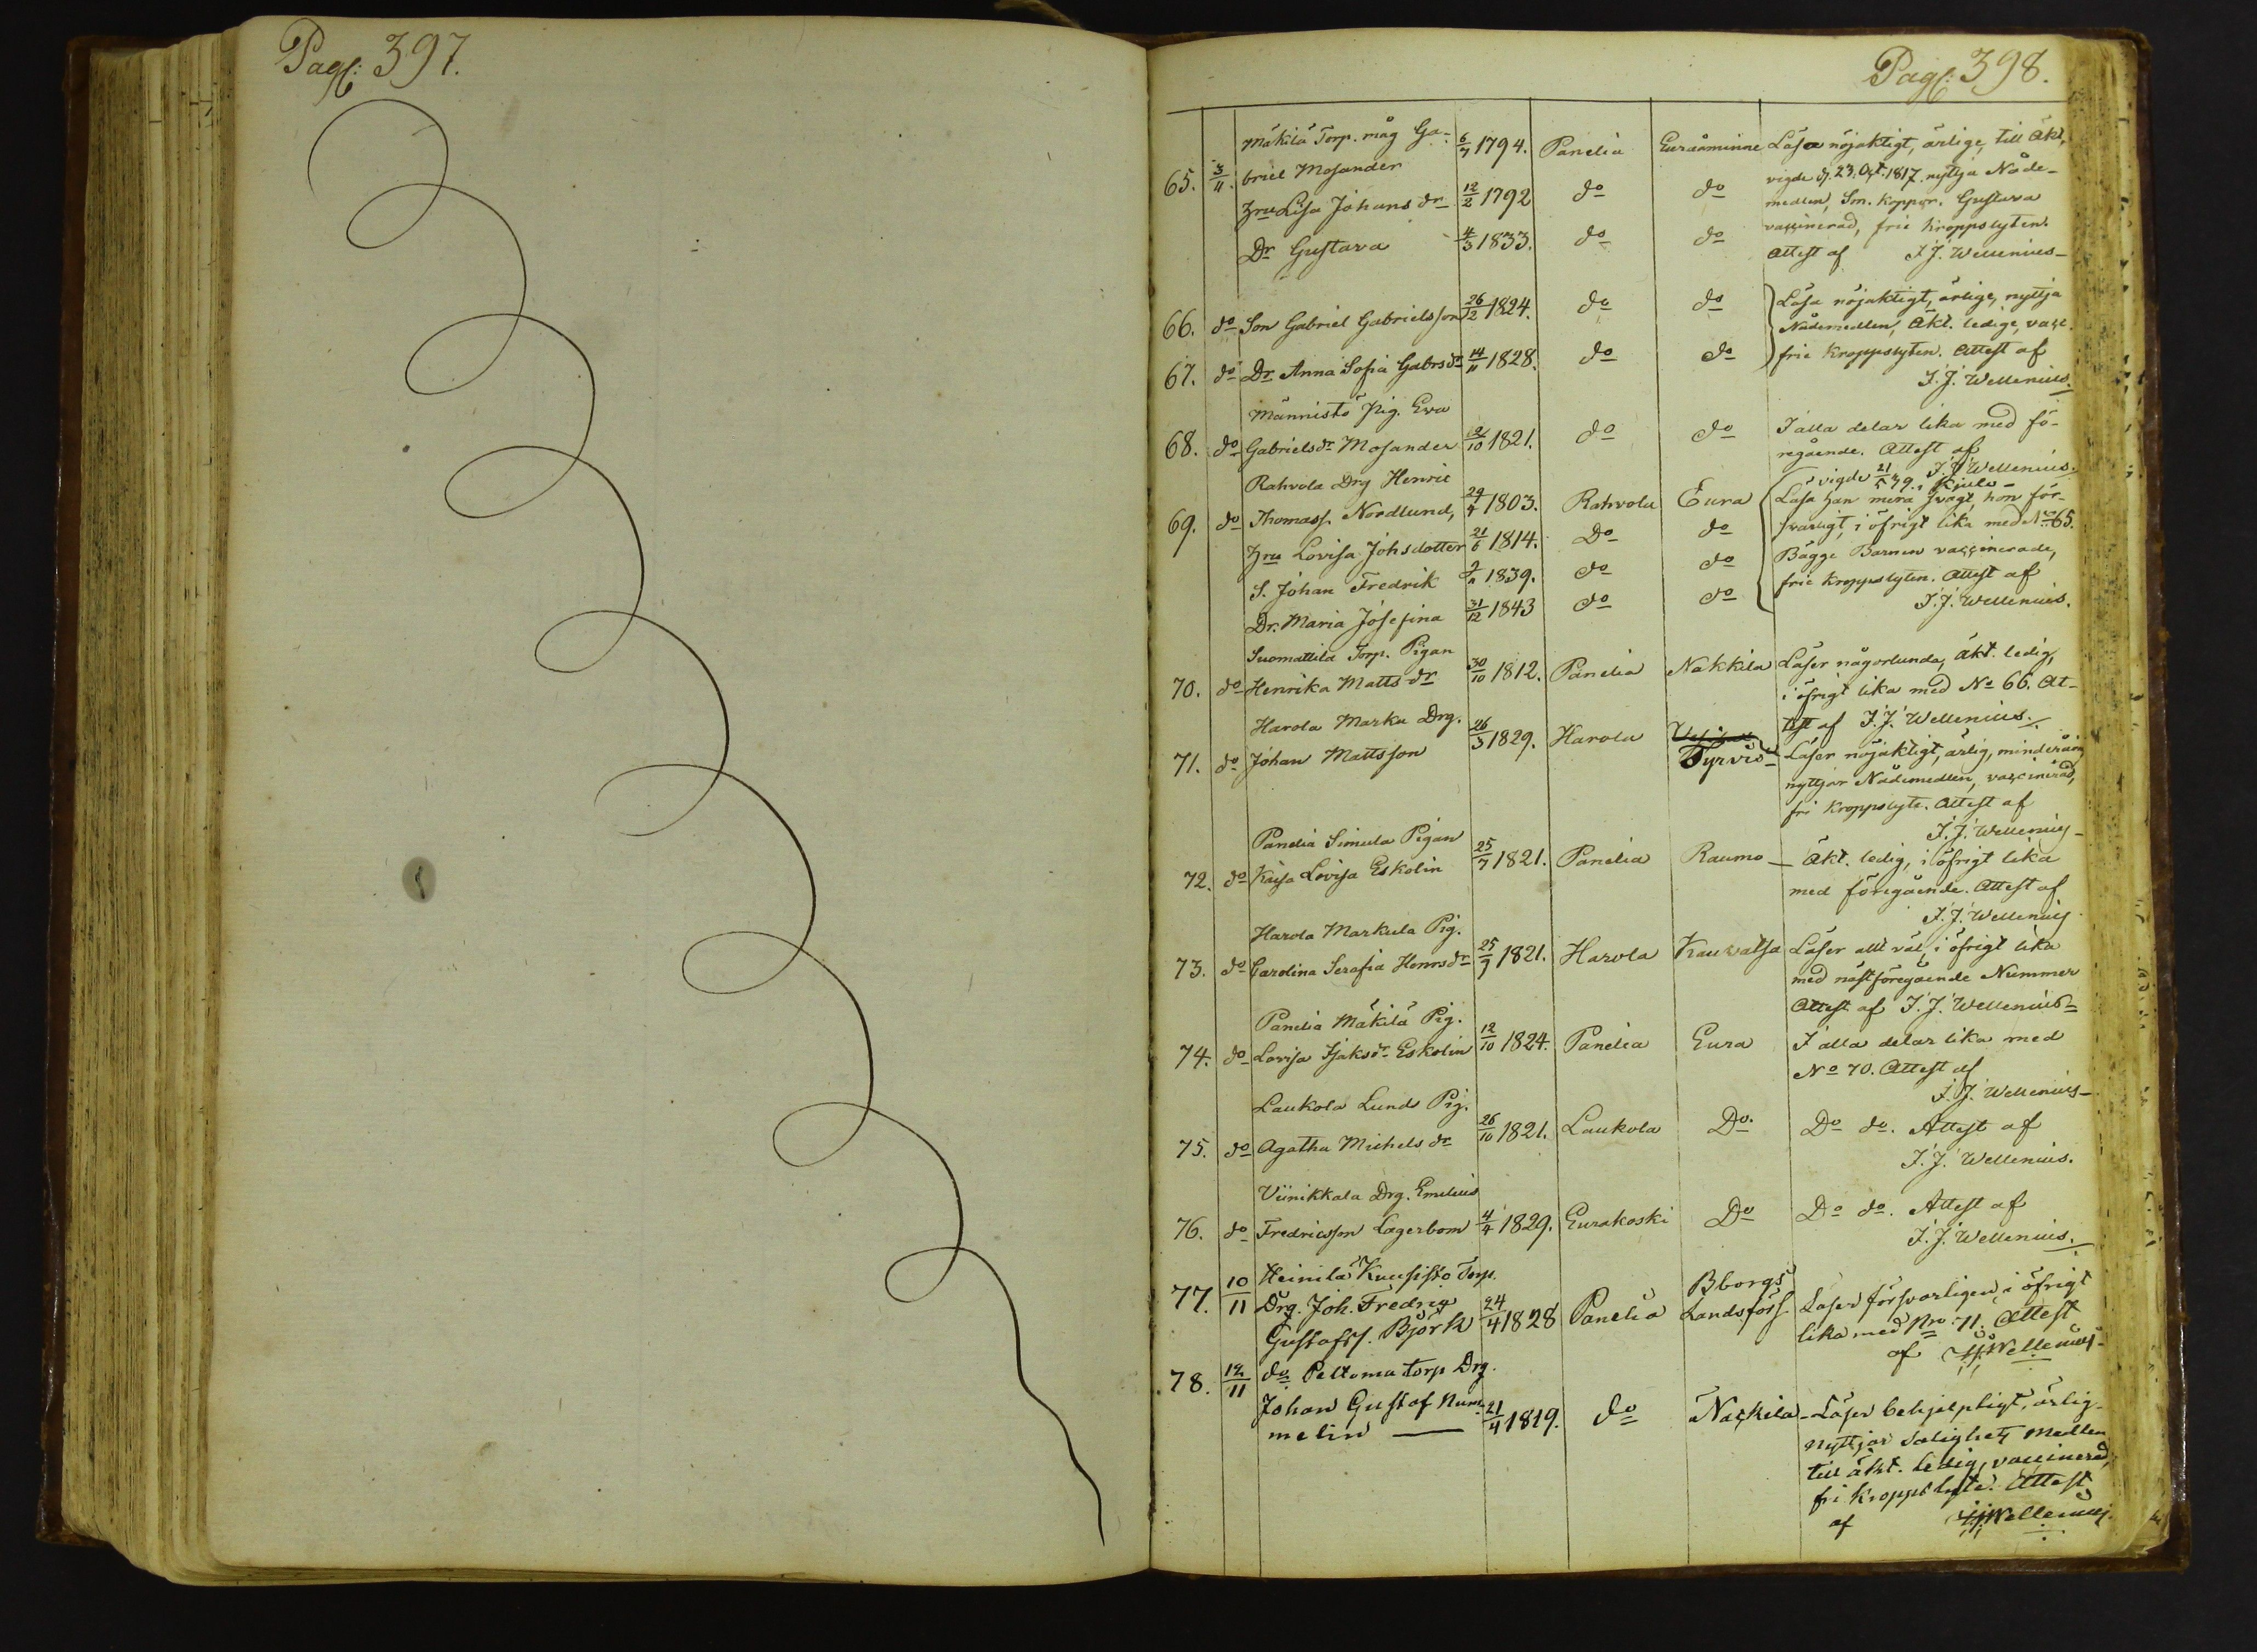 Pag: 397.
Pag: 398.
Mäkilä Torp. måg Ga-
65. 3/11. briel Mosander 6/7 1794. Panelia Euraåminne Läsa nöjaktigt, ärlige, till Äkt,
vigde d. 23. Oct. 1817. nyttja Nåde-
hru Lisa Johans dr 12/2 1792 do do
medlen, Sm. koppor. Gustava
vaccinerad, frie kroppslyten.
Dr Gustava 4/3 1833. do do
Attest af J. J. Wellenius
66. do Son Gabriel Gabrielsson 26/12 1824. do do Läsa nöjaktigt, ärlige, nyttja
Nådemedlen, Äkt. ledige, vacc.
67. do Dr Anna Sofia Gabrs dr 14/11 1828. do do frie kroppslyten. Attest af
J. J. Wellenius.
Männistö Pig. Eva
68. do Gabriels dr Mosander 12/10 1821. do do I alla delar lika med fö-
regående. Attest af
J. J. Wellenius.
Rahvola Drg Henric
vigde 21/5 39. i Kjulo
69. do Thomass. Nordlund, 24/4 1803. Rahvola Eura Läsa han mera svagt, hon för-
svarligt, i öfrigt lika med No 65.
hru Lovisa Johsdotter 21/6 1814. Do do
Bägge Barnen vaccinerade,
S. Johan Fredrik 1839. do do
frie kroppslyten. Attest af
Dr. Maria Josefina 31/12 1843 do do
J. J. Wellenius.
Suomattila Torp. Pigan
70. do Henrika Matts dr 30/10 1812. Panelia Nakkila Läser någorlunda, Äkt. ledig,
i öfrigt lika med No 66. At-
test af J. J. Wellenius.
Harola Marku Drg.
71. do Johan Mattsson 26/3 1829. Harola Tyrvis Läser nöjaktigt, ärlig, minderårig
nyttjar Nådemedlen, vaccinerad,
fri kroppslyte. Attest af
J. J. Wellenius
Panelia Simula Pigan
72. do Kaisa Lovisa Eskolin 25/7 1821. Panelia Raumo Äkt. ledig, i öfrigt lika
med föregående. Attest af
J. J. Wellenius
Harola Markula Pig.
73. do Carolina Serafia Henrs dr 25/9 1821. Harola Kauvatsa Läser allt väl, i öfrigt lika
med nästföregående Nummer
Attest af J. J. Wellenius
Panelia Mäkilä Pig.
74. do Lovisa Isaks dr Eskolin 12/10 1824. Panelia Eura I alla delar lika med
No 70. Attest af
J. J. Wellenius
Laukola Lund Pig.
75. do Agatha Michels dr 26/10 1821. Laukola Do. Do do. Attest af
J. J. Wellenius.
Viinikkala Drg. Emelius
76. do Fredricsson Lagerbom 4/4 1829. Eurakoski Do Do do. Attest af
J. J. Wellenius.
10/11 Heinilä Kuusisto Torp. Bborgs
77. Drg. Joh. Fredrig 24/4 1828 Panelia Landsförs. Läser försvarligen, i öfrigt
Gustafss. Björk lika med Nro 71. Attest
af J J Wellenius.
78. 12/11 do Peltoma torp Drg.
Johan Gustaf Num- 21/4 1819. do Nackila Läser behjelpligt, ärlig
melin nyttjar Salighets Medlen
till äkt. ledig, vaccinerad,
fri kroppslyte. Attest
af J J Wellenius.